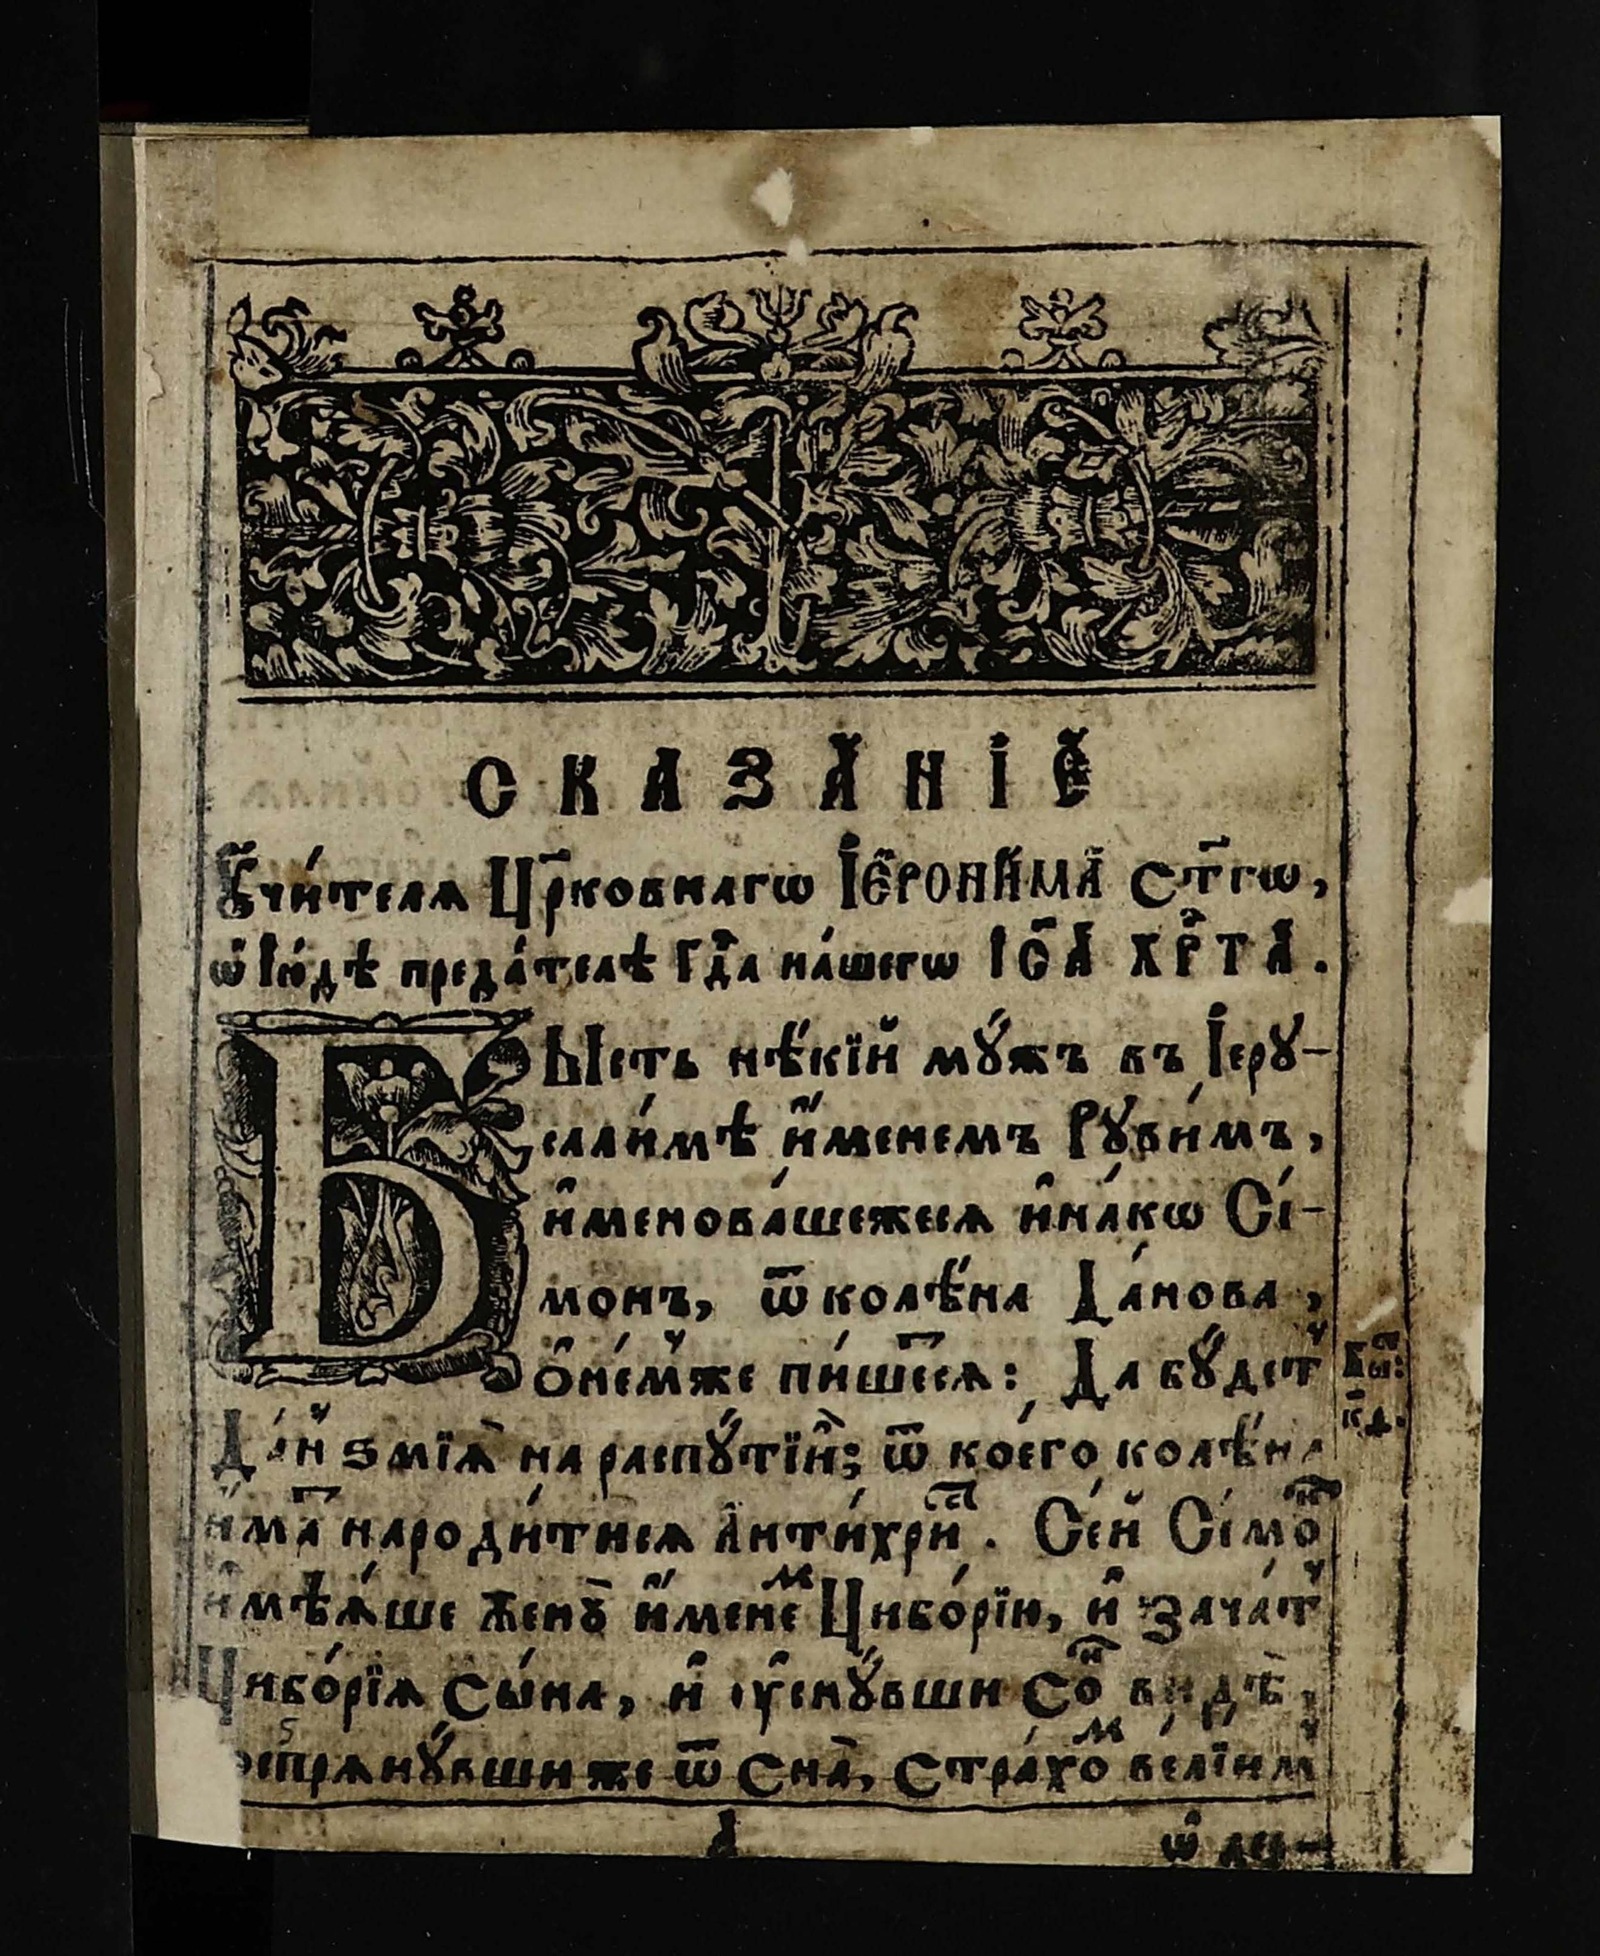 СКАЗА́НІЕ
Ѹ҆чи́телѧ Цр҃ковнагѡ І҆ЕРОНИ́МА ст҃гѡ,
ѡ҆ І҆ꙋ́дѣ преда́телѣ Гд҇а на́шегѡ ІС҃А ХРⷭ҇ТА.
БЫсть нѣ́кїй мꙋ́жъ въ І҆ерꙋ-
сали́мѣ и҆́менемъ Рꙋви́мъ,
и҆менова́шежесѧ и҆на́кѡ Сі́-
монъ, ѿ колѣ́на Да́нова,
ѻ҆не́мже пи́шетсѧ: Да бꙋ́дет
Да́н ѕмїѧ̀ на распꙋ́тїи҆; ѿ коего̀ колѣ́на
и҆́мат народи́тисѧ А҆нти́христ. Се́й Сі́мон
и҆мѣ́ѧше женꙋ̀ и҆́менем Цибо́рїи, и҆ зача́т
Цибо́рїѧ сы́на, и҆ ᲂу҆снꙋ́вши со́н ви́дѣ,
востпрѧнꙋ́вши же ѿ сна̀, стра́хом ве́лїим
Бы:
к҃д.
А
ѡ҆ дц-